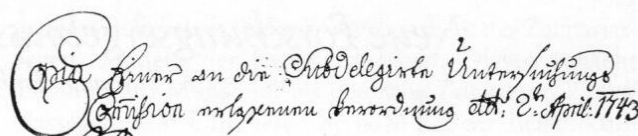 Copia Einer an die Subdelegirte Untersuchungs
Com̄ission erlaßenen Verordnung ddt: 2t April: 1743